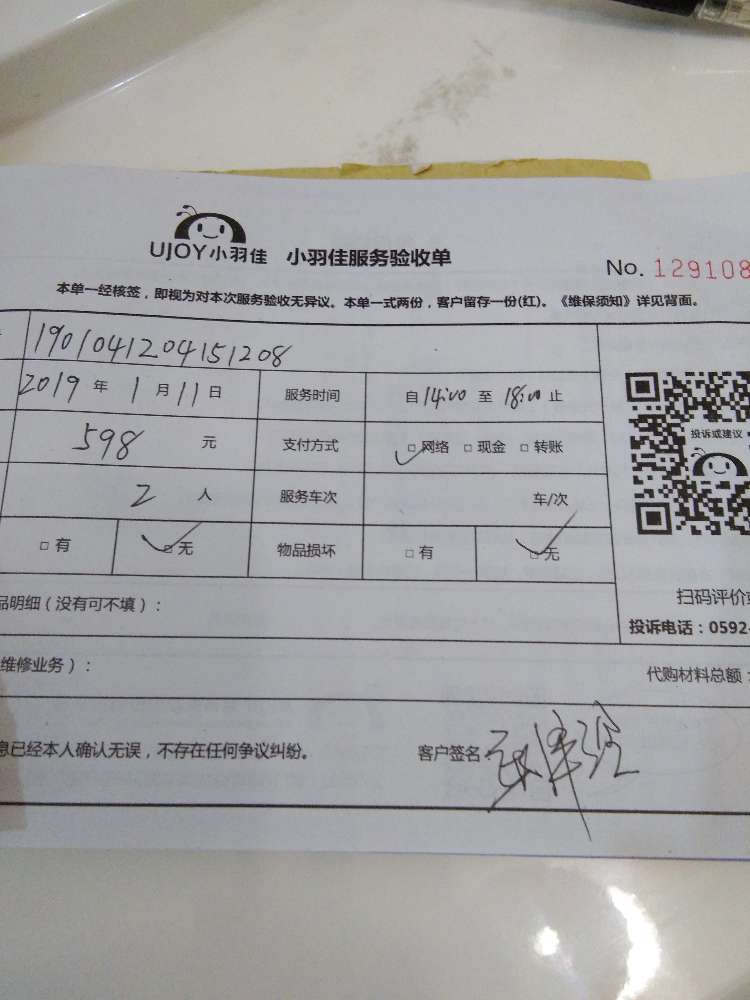 UJOY小羽佳 小羽佳服务验收单
No. 129108
本单一经核签，即视为对本次服务验收无异议。本单一式两份，客户留存一份(红)。《维保须知》详见背面。
1901041204151208
2019 年 1 月 11 日 服务时间 自 14:00 至 18:00 止
598 元 支付方式 □ 网络 □ 现金 □ 转账
投诉或建议
2 人 服务车次 车/次
□ 有 □ 无 物品损坏 □ 有 □ 无
扫码评价
品明细（没有可不填）：
投诉电话：0592-
维修业务）：
代购材料总额：
息已经本人确认无误，不存在任何争议纠纷。 客户签名